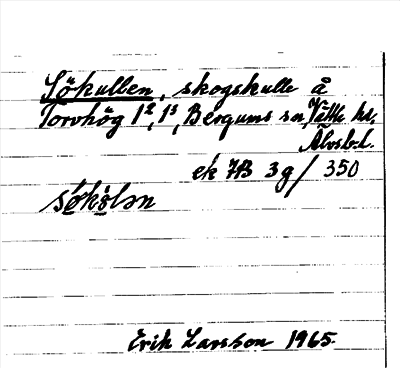 Sökullen, skogskulle å
Torvhög 1², 1³, Bergums sn, Vättle hd,
Älvsb.l.
ek 7B 3g / 350
søkølən
Erik Larsson 1965.